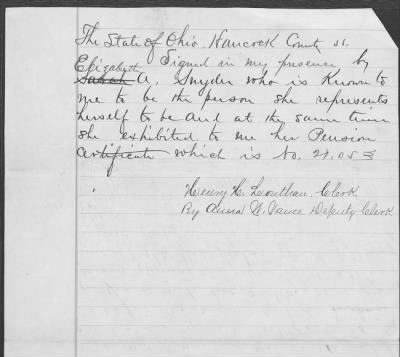 The State of Ohio. Hancock County ss.
Elizabeth Signed in my presence by
Sarah A. Snyder who is Known to
me to be the person she represents
herself to be And at the same time
she exhibited to me her Pension
Certificate which is No. 21,053
Henry H. Louthan. Clerk
By Anna W. Vance Deputy Clerk